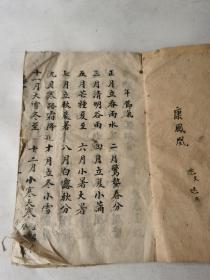 康鳳凰
年節氣
正月立春雨水 二月驚蟄春分
三月清明谷雨 四月立夏小滿
五月芒種夏至 六月小暑大暑
七月立秋處暑 八月白露秋分
九月寒露霜降 十月立冬小雪
十一月大雪冬至 十二月小寒大寒